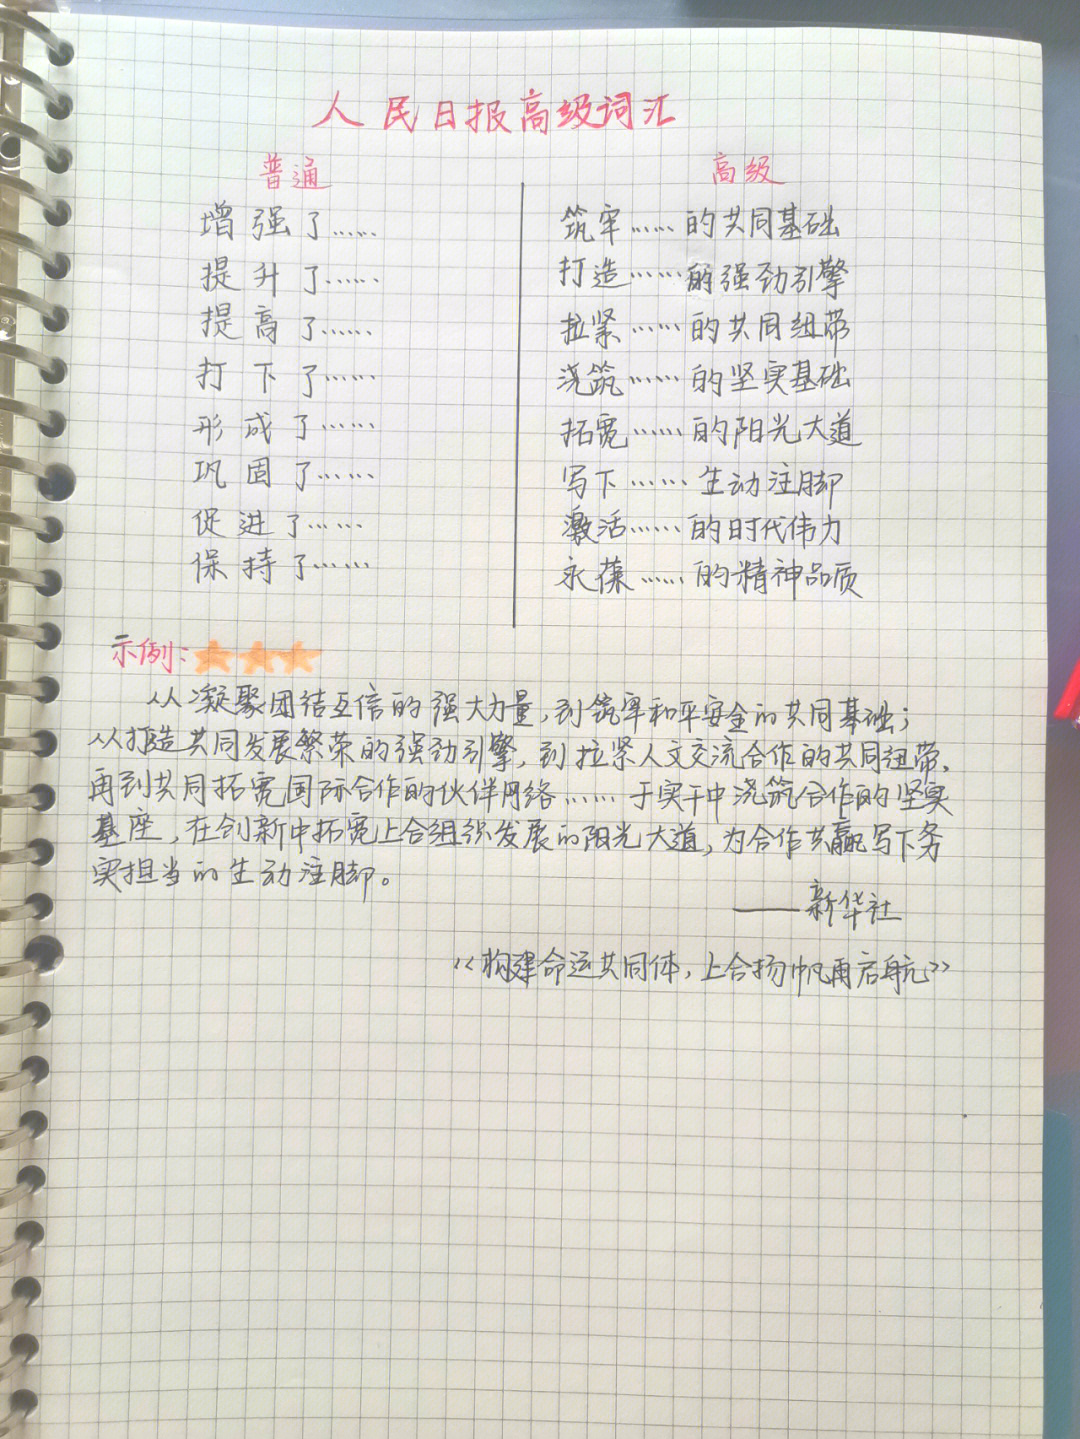 人民日报高级词汇
普通 高级
增强了…… 筑牢……的共同基础
提升了…… 打造……的强劲引擎
提高了…… 拉紧……的共同纽带
打下了…… 浇筑……的坚实基础
形成了…… 拓宽……的阳光大道
巩固了…… 写下……生动注脚
促进了…… 激活……的时代伟力
保持了…… 永葆……的精神品质
示例:
从凝聚团结互信的强大力量,到筑牢和平安全的共同基础;
从打造共同发展繁荣的强劲引擎,到拉紧人文交流合作的共同纽带,
再到共同拓宽国际合作的伙伴网络……于实干中浇筑合作的坚实
基座,在创新中拓宽上合组织发展的阳光大道,为合作共赢写下务
实担当的生动注脚。
——新华社
《构建命运共同体,上合扬帆再启航》